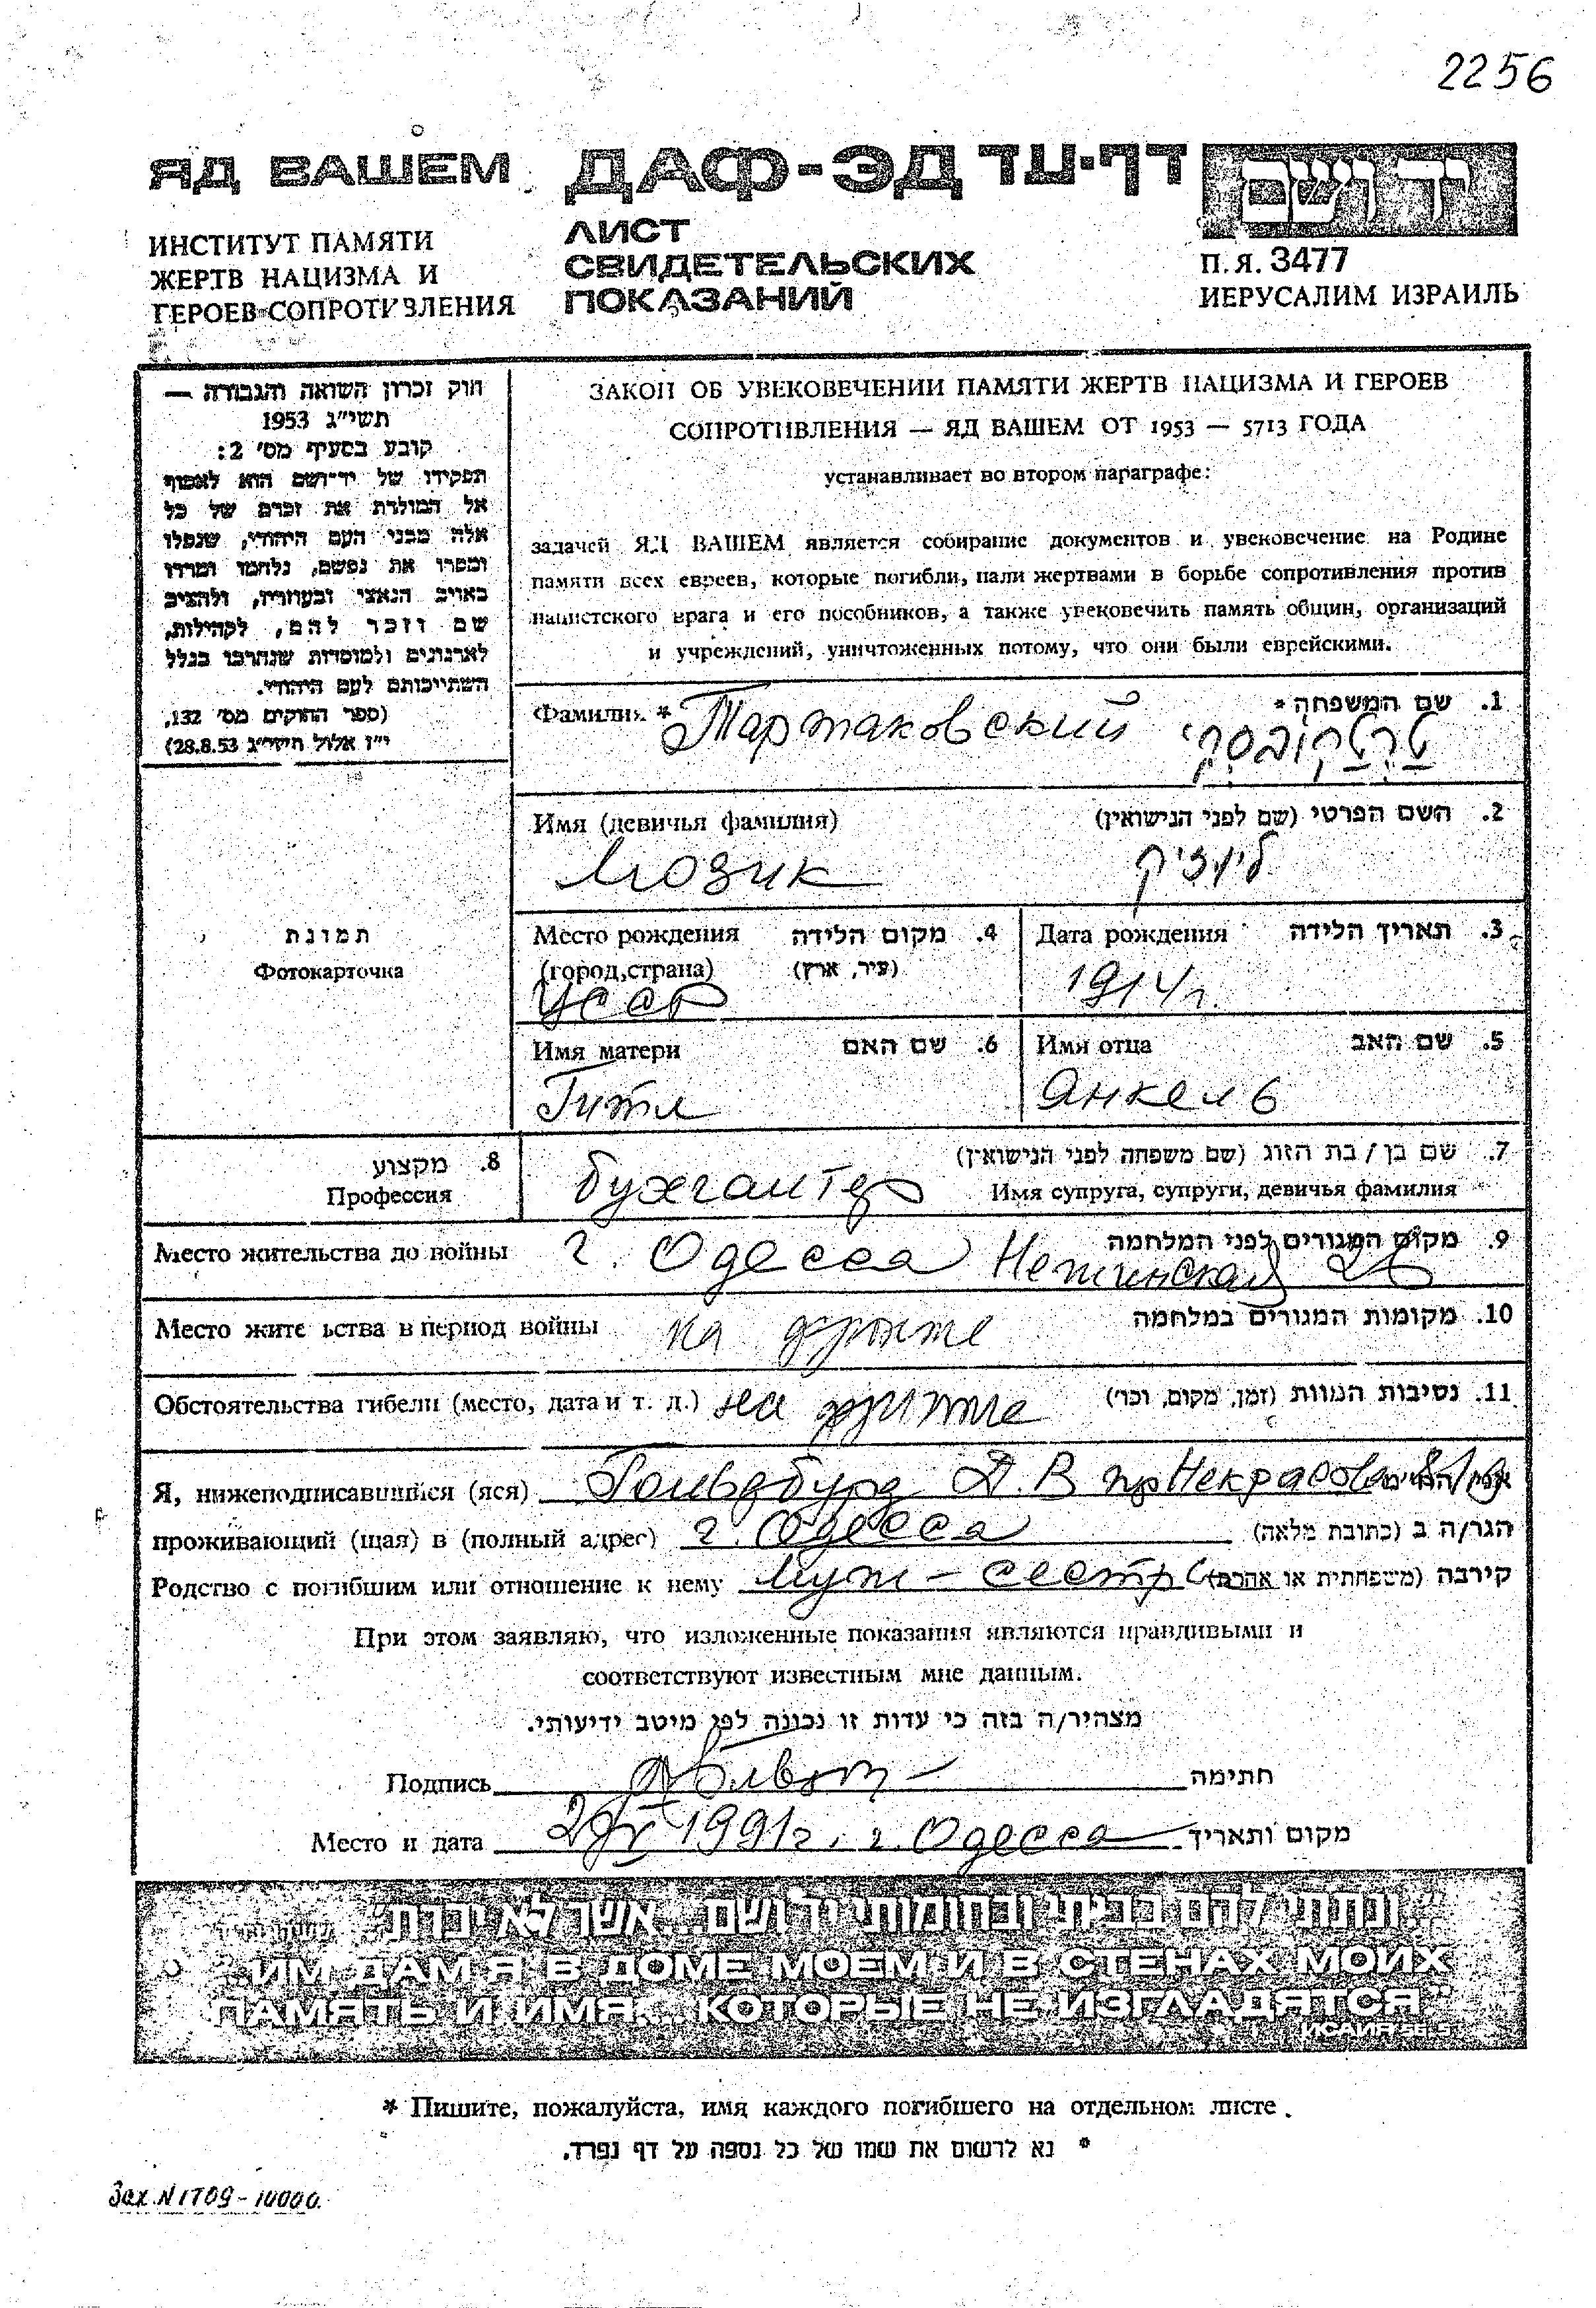 2256
ЯД ВАШЕМ ДАФ-ЭД דף-עד יד ושם
ИНСТИТУТ ПАМЯТИ
ЖЕРТВ НАЦИЗМА И
ГЕРОЕВ СОПРОТИВЛЕНИЯ
ЛИСТ
СВИДЕТЕЛЬСКИХ
ПОКАЗАНИЙ
П.Я. 3477
ИЕРУСАЛИМ ИЗРАИЛЬ
חוק זכרון השואה והגבורה —
תשי"ג 1953
קובע בסעיף מס' 2:
תפקידו של יד-ושם הוא לאסוף
אל המולדת את זכרם של כל
אלה מבני העם היהודי, שנפלו
ומסרו את נפשם, נלחמו ומרדו
באויב הנאצי ובעוזריו, ולהציב
שם וזכר להם, לקהילות,
לארגונים ולמוסדות שנחרבו בגלל
השתייכותם לעם היהודי.
(ספר החוקים מס' 132,
י"ז אלול תשי"ג 28.8.53)
ЗАКОН ОБ УВЕКОВЕЧЕНИИ ПАМЯТИ ЖЕРТВ НАЦИЗМА И ГЕРОЕВ
СОПРОТИВЛЕНИЯ — ЯД ВАШЕМ ОТ 1953 — 5713 ГОДА
устанавливает во втором параграфе:
задачей ЯД ВАШЕМ является собирание документов и увековечение на Родине
памяти всех евреев, которые погибли, пали жертвами в борьбе сопротивления против
нацистского врага и его пособников, а также увековечить память общин, организаций
и учреждений, уничтоженных потому, что они были еврейскими.
Фамилия * Тартаковский 1. שם המשפחה *
טרטקובסקי
Имя (девичья фамилия) 2. השם הפרטי (שם לפני הנישואין)
Люзик ליוזיק
תמונת
Фотокарточка
Место рождения 4. מקום הלידה
(город, страна) (עיר, ארץ)
УССР
Дата рождения 3. תאריך הלידה
1914г.
Имя матери 6. שם האם
Гитл
Имя отца 5. שם האב
Янкель
8. מקצוע
Профессия
бухгалтер
7. שם בן / בת הזוג (שם משפחה לפני הנישואין)
Имя супруга, супруги, девичья фамилия
Место жительства до войны г. Одесса 9. מקום המגורים לפני המלחמה
Место жительства в период войны на фронте 10. מקומות המגורים במלחמה
Обстоятельства гибели (место, дата и т. д.) на фронте 11. נסיבות המוות (זמן, מקום, וכו')
Я, нижеподписавшийся (яся) Гольдбурд Д. В
проживающий (щая) в (полный адрес) г. Одесса הגר/ה ב (כתובת מלאה)
Родство с погибшим или отношение к нему муж – сестры קירבה (משפחתית או אחרת)
При этом заявляю, что изложенные показания являются правдивыми и
соответствуют известным мне данным.
מצהיר/ה בזה כי עדות זו נכונה לפי מיטב ידיעותי.
Подпись חתימה
Место и дата 1991г. г. Одесса מקום ותאריך
"...ונתתי להם בביתי ובחומותי יד ושם... אשר לא יכרת"
"...ИМ ДАМ Я В ДОМЕ МОЕМ И В СТЕНАХ МОИХ
ПАМЯТЬ И ИМЯ... КОТОРЫЕ НЕ ИЗГЛАДЯТСЯ"
ИСАИЯ 56.5
* Пишите, пожалуйста, имя каждого погибшего на отдельном листе.
* נא לרשום את שמו של כל נספה על דף נפרד.
Зак. N 1709 – 10000.